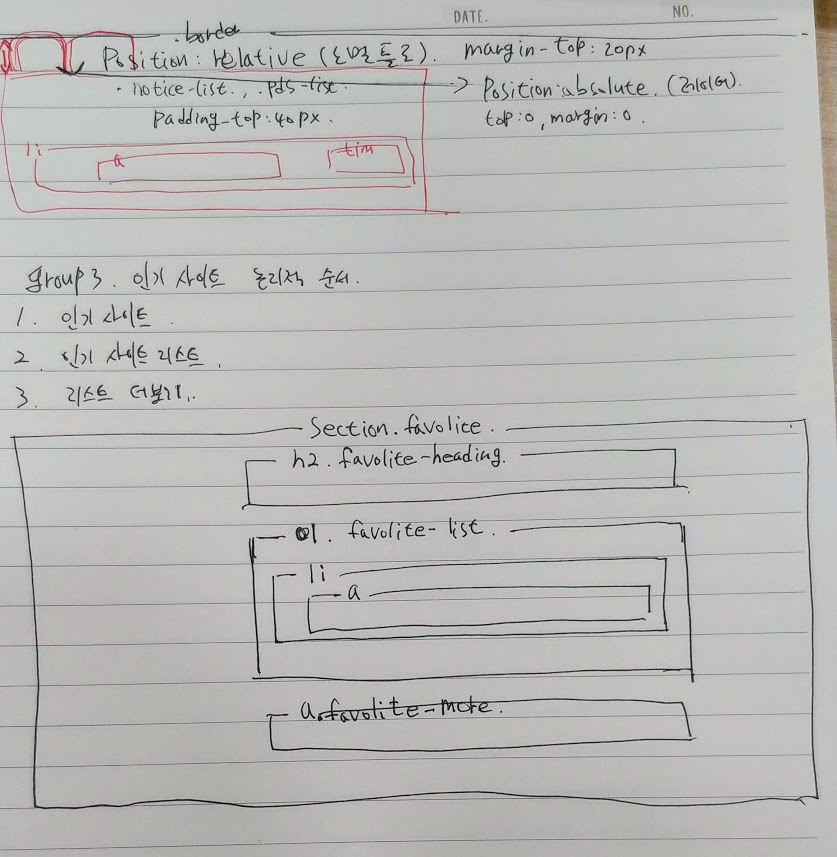 DATE.
NO.
.border
Position : relative (노멀 플로). margin-top : 20px
· notice-list., .pds-list. → Position:absolute. (레이어).
padding-top:40px. top:0, margin:0.
li
a
tim
group 3. 인기 사이트 논리적 순서.
1. 인기 사이트.
2. 인기 사이트 리스트.
3. 리스트 더보기..
Section.favolite.
h2.favolite-heading.
ol. favolite-list.
li
a
a.favolite-more.